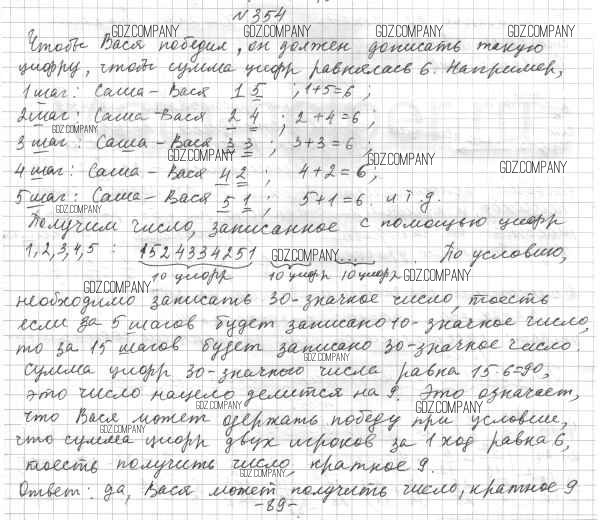 №354
GDZ.COMPANY GDZ.COMPANY GDZ.COMPANY GDZ.COMPANY
Чтобы Вася победил, он должен дописать такую
цифру, чтобы сумма цифр равнялась 6. Например,
1 шаг: Саша – Вася 1 5 ; 1+5=6 ;
2 шаг: Саша – Вася 2 4 ; 2+4=6 ;
GDZ.COMPANY
3 шаг: Саша – Вася 3 3 ; 3+3=6 ;
GDZ.COMPANY GDZ.COMPANY GDZ.COMPANY
4 шаг: Саша – Вася 4 2 ; 4+2=6 ;
5 шаг: Саша – Вася 5 1 ; 5+1=6. и т.д.
GDZ.COMPANY
Получим число, записанное с помощью цифр
1,2,3,4,5 : 1524334251 GDZ.COMPANY ... . По условию,
10 цифр 10 цифр 10 цифр GDZ.COMPANY
GDZ.COMPANY
необходимо записать 30-значное число, тоесть
если за 5 шагов будет записано 10-значное число,
то за 15 шагов будет записано 30-значное число.
GDZ.COMPANY
Сумма цифр 30-значного числа равна 15·6=90,
это число нацело делится на 9. Это означает,
GDZ.COMPANY GDZ.COMPANY
что Вася может одержать победу при условии,
GDZ.COMPANY
что сумма цифр двух игроков за 1 ход равна 6,
тоесть получить число, кратное 9.
GDZ.COMPANY
Ответ: да, Вася может получить число, кратное 9
-89-